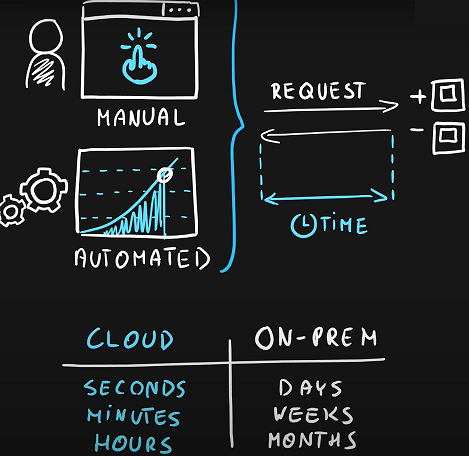 MANUAL
AUTOMATED
REQUEST
+
-
TIME
CLOUD ON-PREM
SECONDS DAYS
MINUTES WEEKS
HOURS MONTHS